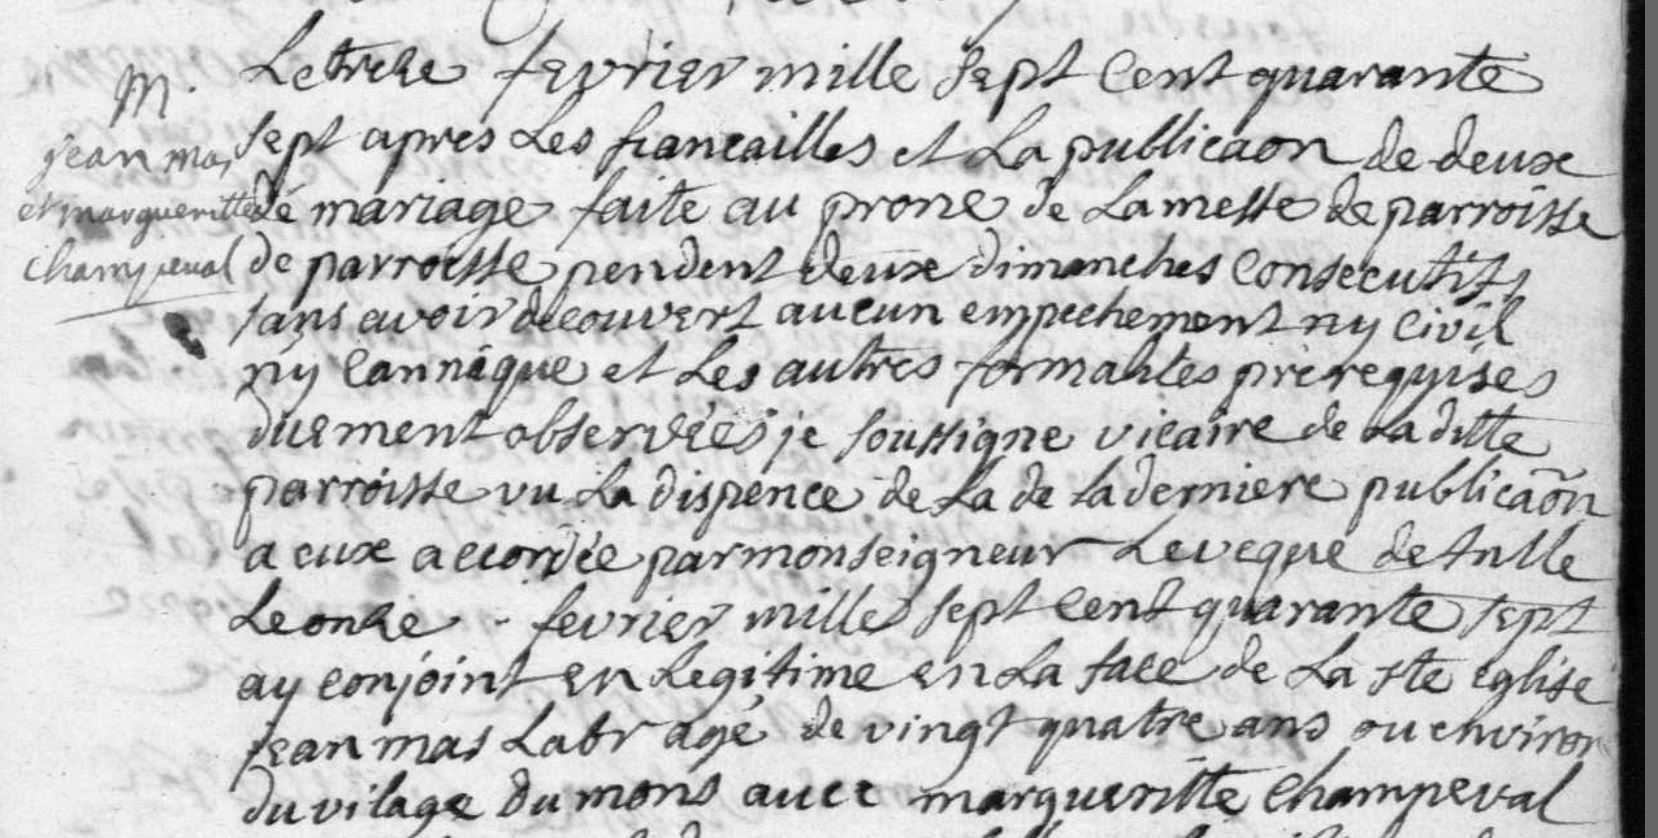 M.
jean mas
et margueritte
champeval
Le treze fevrier mille sept cent quarante
sept apres Les fiancailles et La publicaon de deux
de mariage faite au prone de La messe de parroisse
de parroisse pendent deux dimanches consecutifs
sans avoir decouvert aucun empechement ny civil
ny cannäque et Les autres formalites prerequises
duement observées je soussigne vicaire de La ditte
parroisse vu La dispence de La de la derniere publicaõn
a eux accordée par monseigneur Leveque de tulle
Le onze - fevrier mille sept cent quarante sept
ay conjoint en Legitime en La face de La ste eglise
jean mas Labr agé de vingt quatre ans ou environ
du vilage du mons avec margueritte champeval